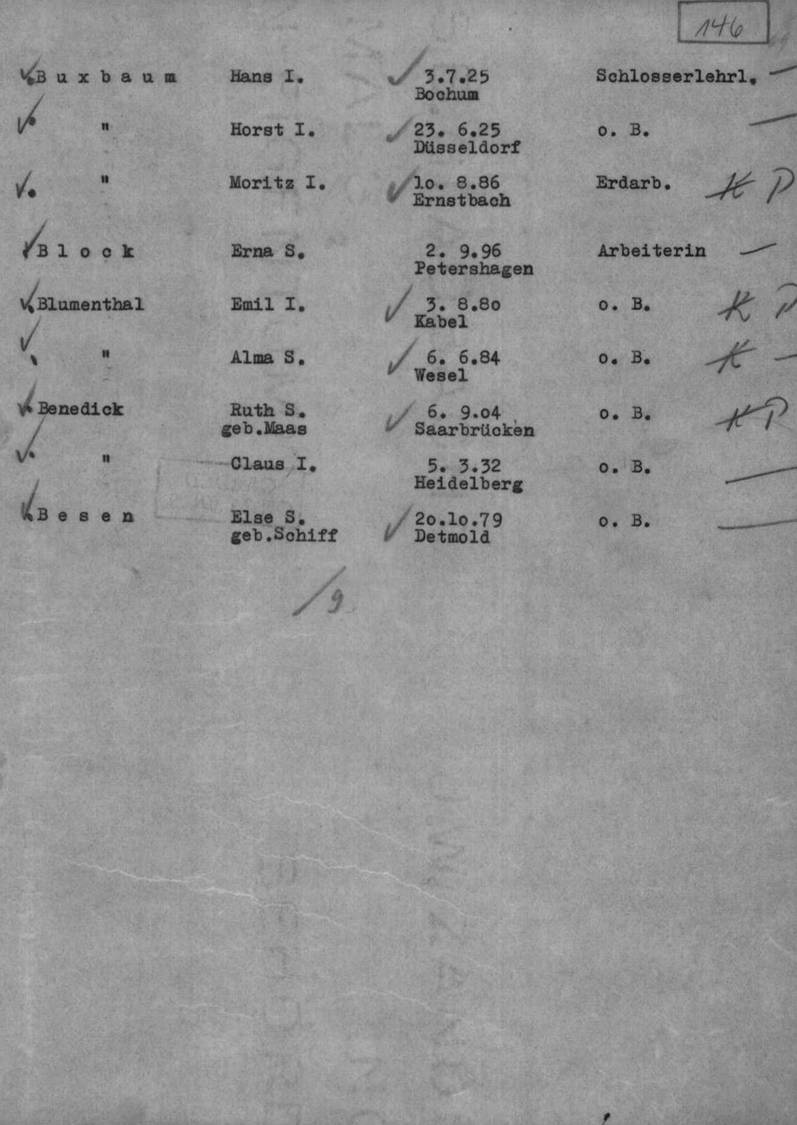 146
Buxbaum Hans I. 3.7.25 Schlosserlehrl. —
Bochum
" Horst I. 23. 6.25 o. B. —
Düsseldorf
" Moritz I. 1o. 8.86 Erdarb. K P
Ernstbach
Block Erna S. 2. 9.96 Arbeiterin —
Petershagen
Blumenthal Emil I. 3. 8.8o o. B. K P
Kabel
" Alma S. 6. 6.84 o. B. K —
Wesel
Benedick Ruth S. 6. 9.o4 o. B. K P
geb.Maas Saarbrücken
" Claus I. 5. 3.32 o. B. —
Heidelberg
Besen Else S. 2o.1o.79 o. B. —
geb.Schiff Detmold
/9